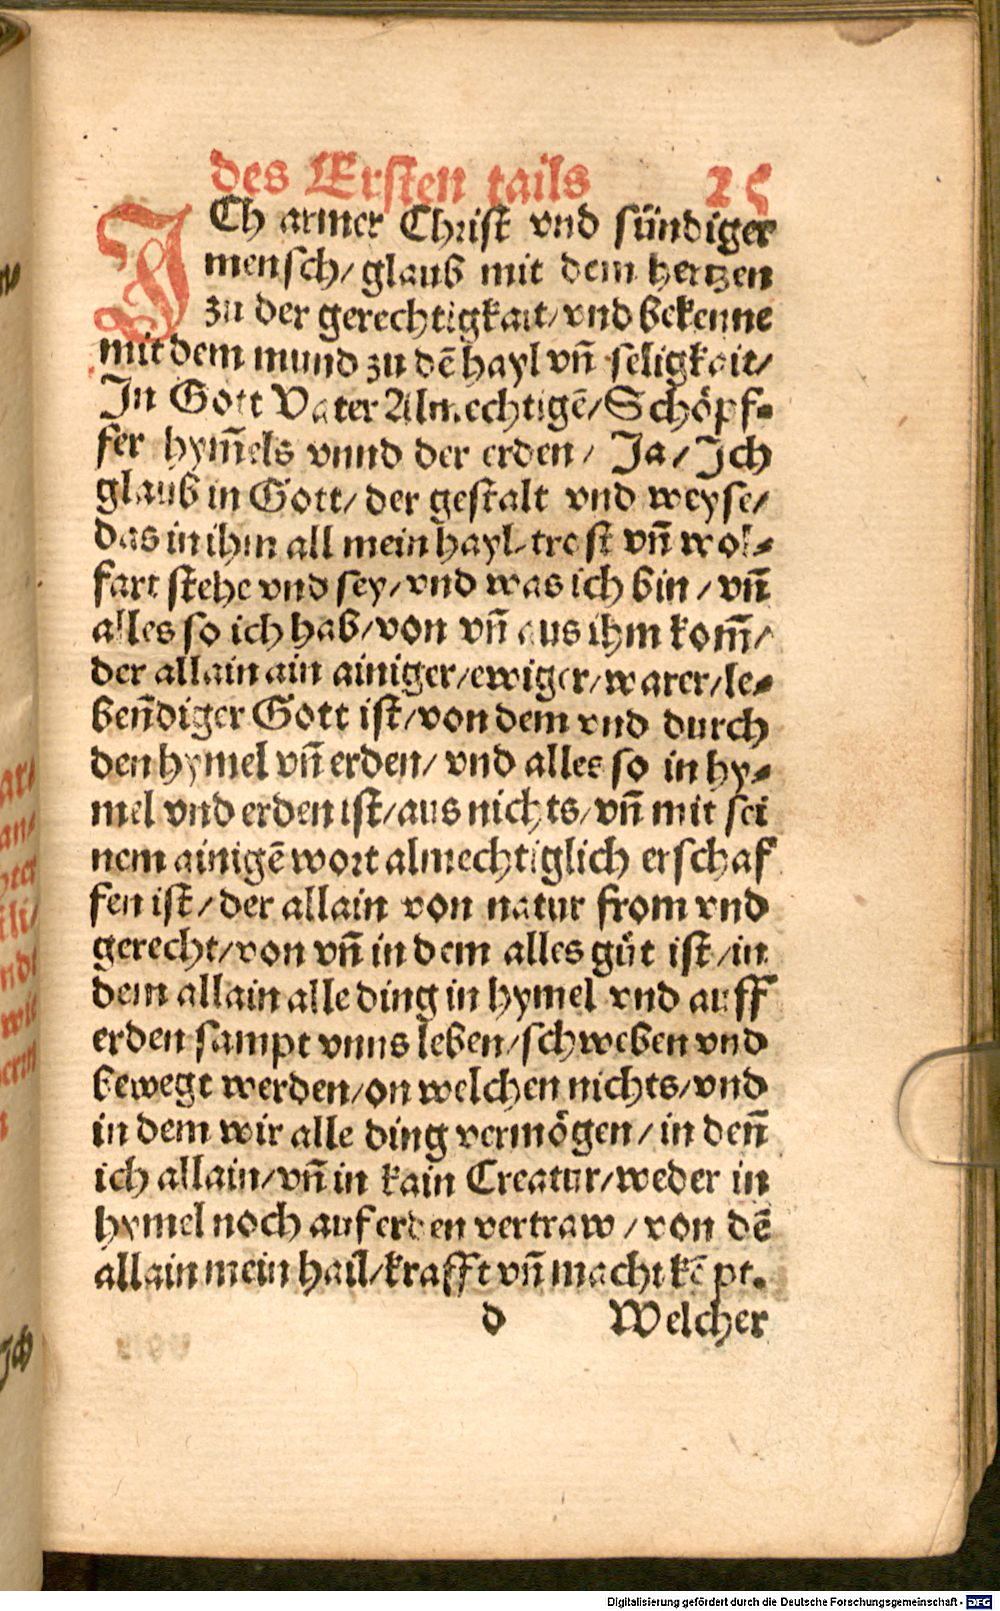 des Ersten tails 25
ICh armer Christ vnd sündiger
mensch/ glaub mit dem hertzen
zu der gerechtigkait/ vnd bekenne
mit dem mund zu dē hayl vn̄ seligkait/
In Gott Vater Almechtigē/ Schöpf⸗
fer hym̄els vnnd der erden/ Ja/ Ich
glaub in Gott/ der gestalt vnd weyse/
das in ihm all mein hayl/ trost vn̄ wol⸗
fart stehe vnd sey/ vnd was ich bin/ vn̄
alles so ich hab/ von vn̄ aus ihm kom̄/
der allain ain ainiger/ ewiger/ warer/ le⸗
ben̄diger Gott ist/ von dem vnd durch
den hymel vn̄ erden/ vnd alles so in hy⸗
mel vnd erden ist/ aus nichts/ vn̄ mit sei
nem ainigē wort almechtiglich erschaf
fen ist/ der allain von natur from vnd
gerecht/ von vn̄ in dem alles gůt ist/ in
dem allain alle ding in hymel vnd auff
erden sampt vnns leben/ schweben vnd
bewegt werden/ on welchen nichts/ vnd
in dem wir alle ding vermögen/ in den̄
ich allain/ vn̄ in kain Creatur/ weder in
hymel noch auf erden vertraw/ von dē
allain mein hail/ krafft vn̄ macht kēpt.
d Welcher
Digitalisierung gefördert durch die Deutsche Forschungsgemeinschaft - DFG